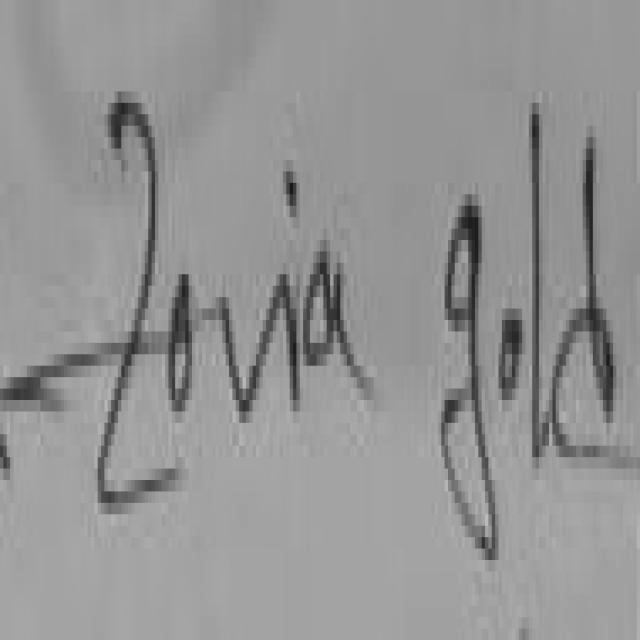 Zovia gold